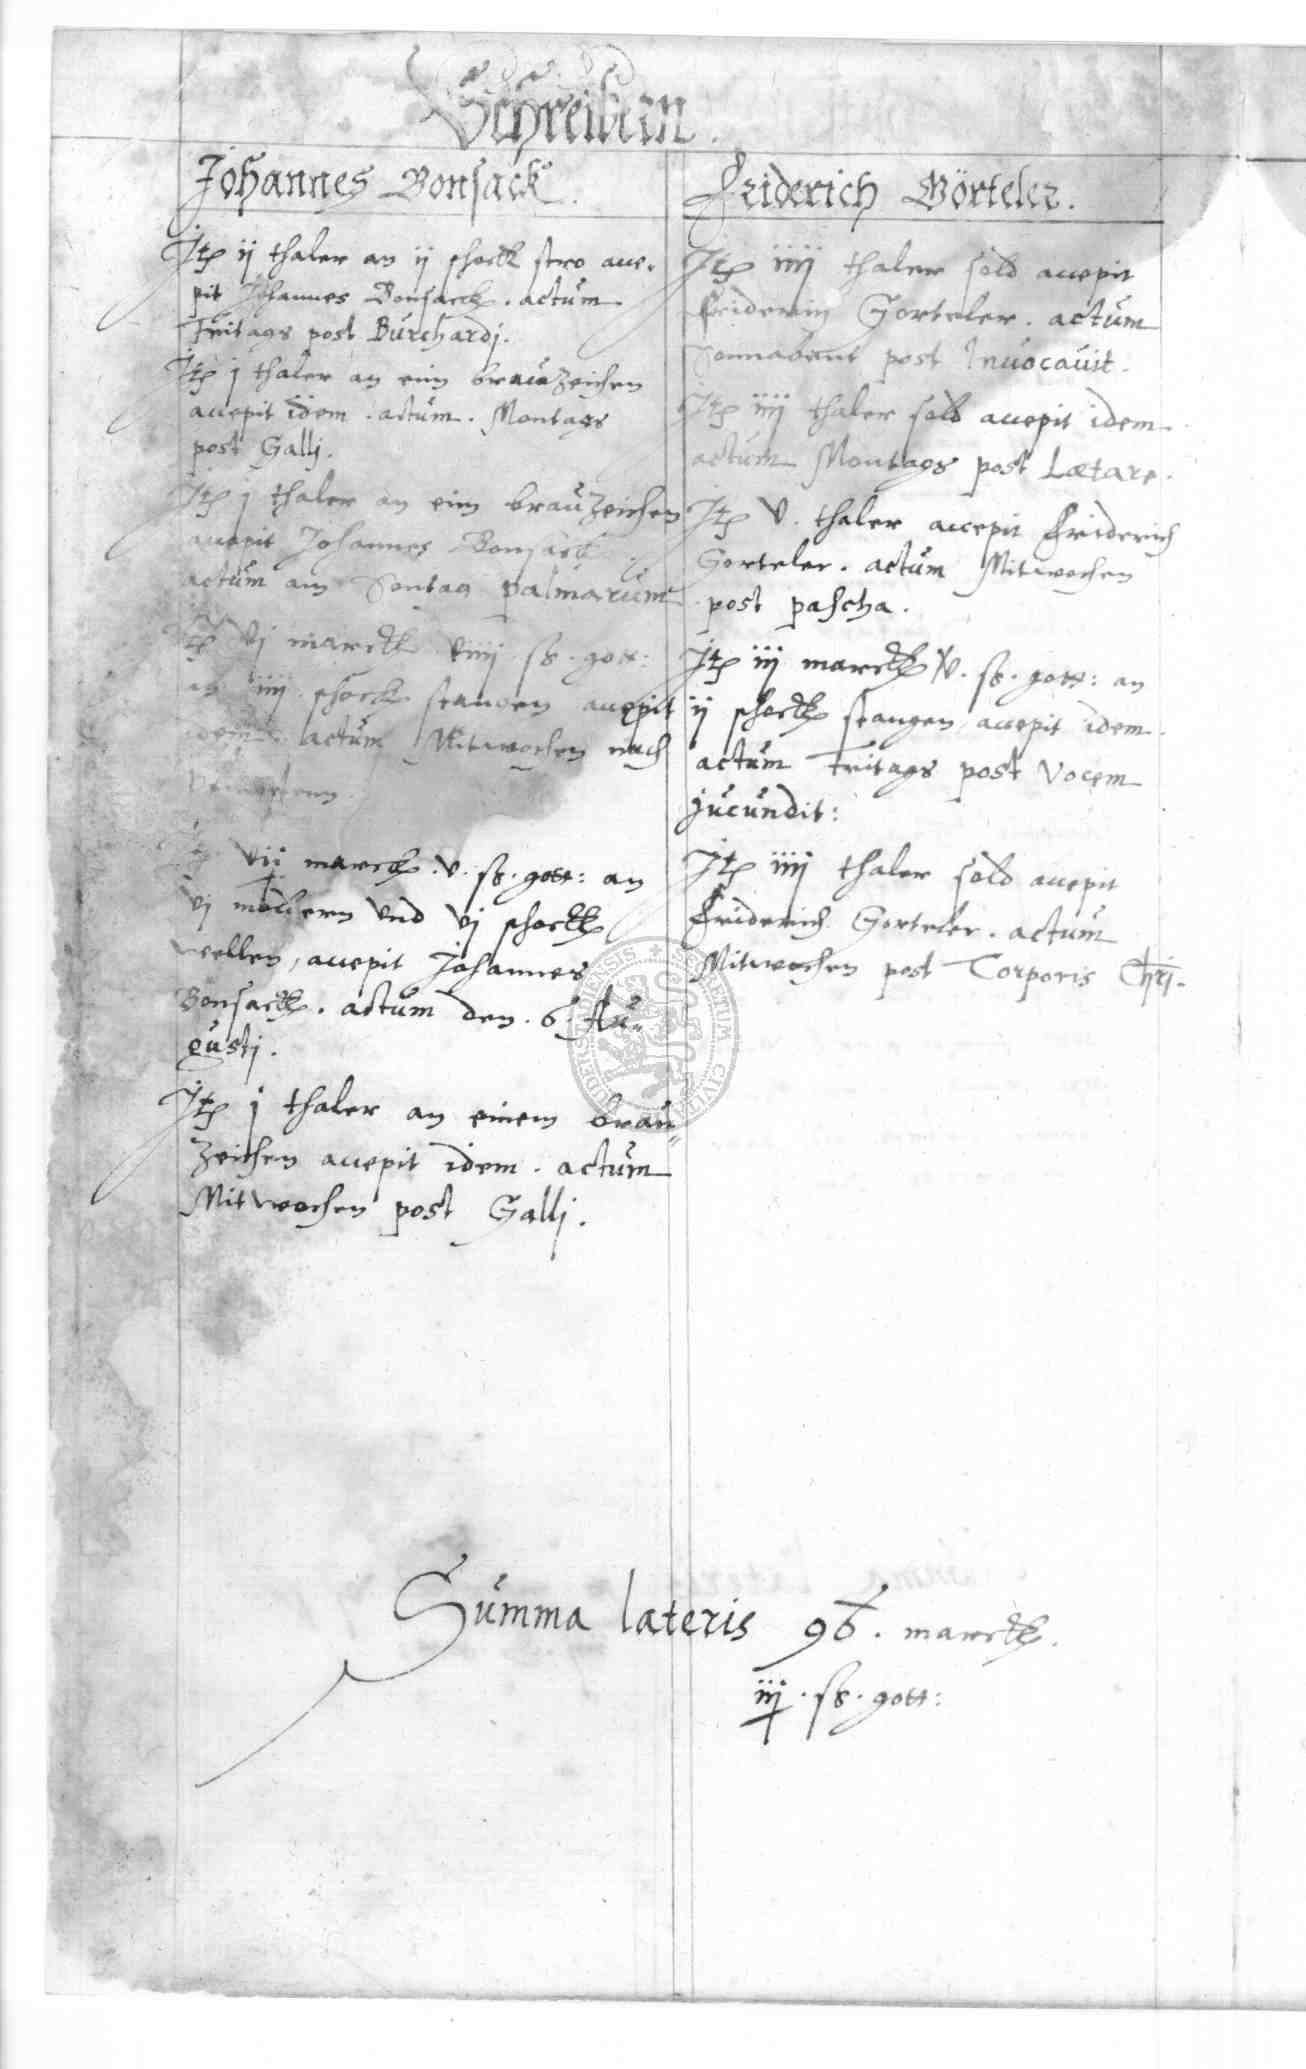 Schreibern.
Johannes Bonsack.
Jtē ij thaler an ij schock stro acce-
pit Johannes Bonsack. actum
Fritags post Burchardj.
Jtē j thaler an eim brauzeichen
accepit idem. actum. Montags
post Gallj.
Jtē j thaler an eim brauzeichen
accepit Johannes Bonsack.
actum am Sontag palmarum
Jtē vj marck viiij sß. gott:
an iiij schock stangen accepit
idem. actum Mitwochen nach

vij marck. v. sß. gott: an
vj moldern vnd vj schock
wellen, accepit Johannes
Bonsack. actum den. 6. Au=
gustj.
Jtē j thaler an einem brau=
zeichen accepit idem. actum
Mitwochen post Gallj.
Friderich Görteler.
Jtē iiij thaler sold accepit
Friderich Gorteler. actum
Sonnabent post Inuocauit.
Jtē iiij thaler sold accepit idem
actum Montags post Lætare.
Jtē v. thaler accepit Friderich
Gorteler. actum Mitwochen
post pascha.
Jtē iij marck v. sß. gott: an
ij schock stangen accepit idem.
actum Fritags post Vocem
jucundit:
Jtē iiij thaler sold accepit
Friderich Gorteler. actum
Mitwochen post Corporis Chrj.
Summa lateris 96. marck.
iij. sß. gott: